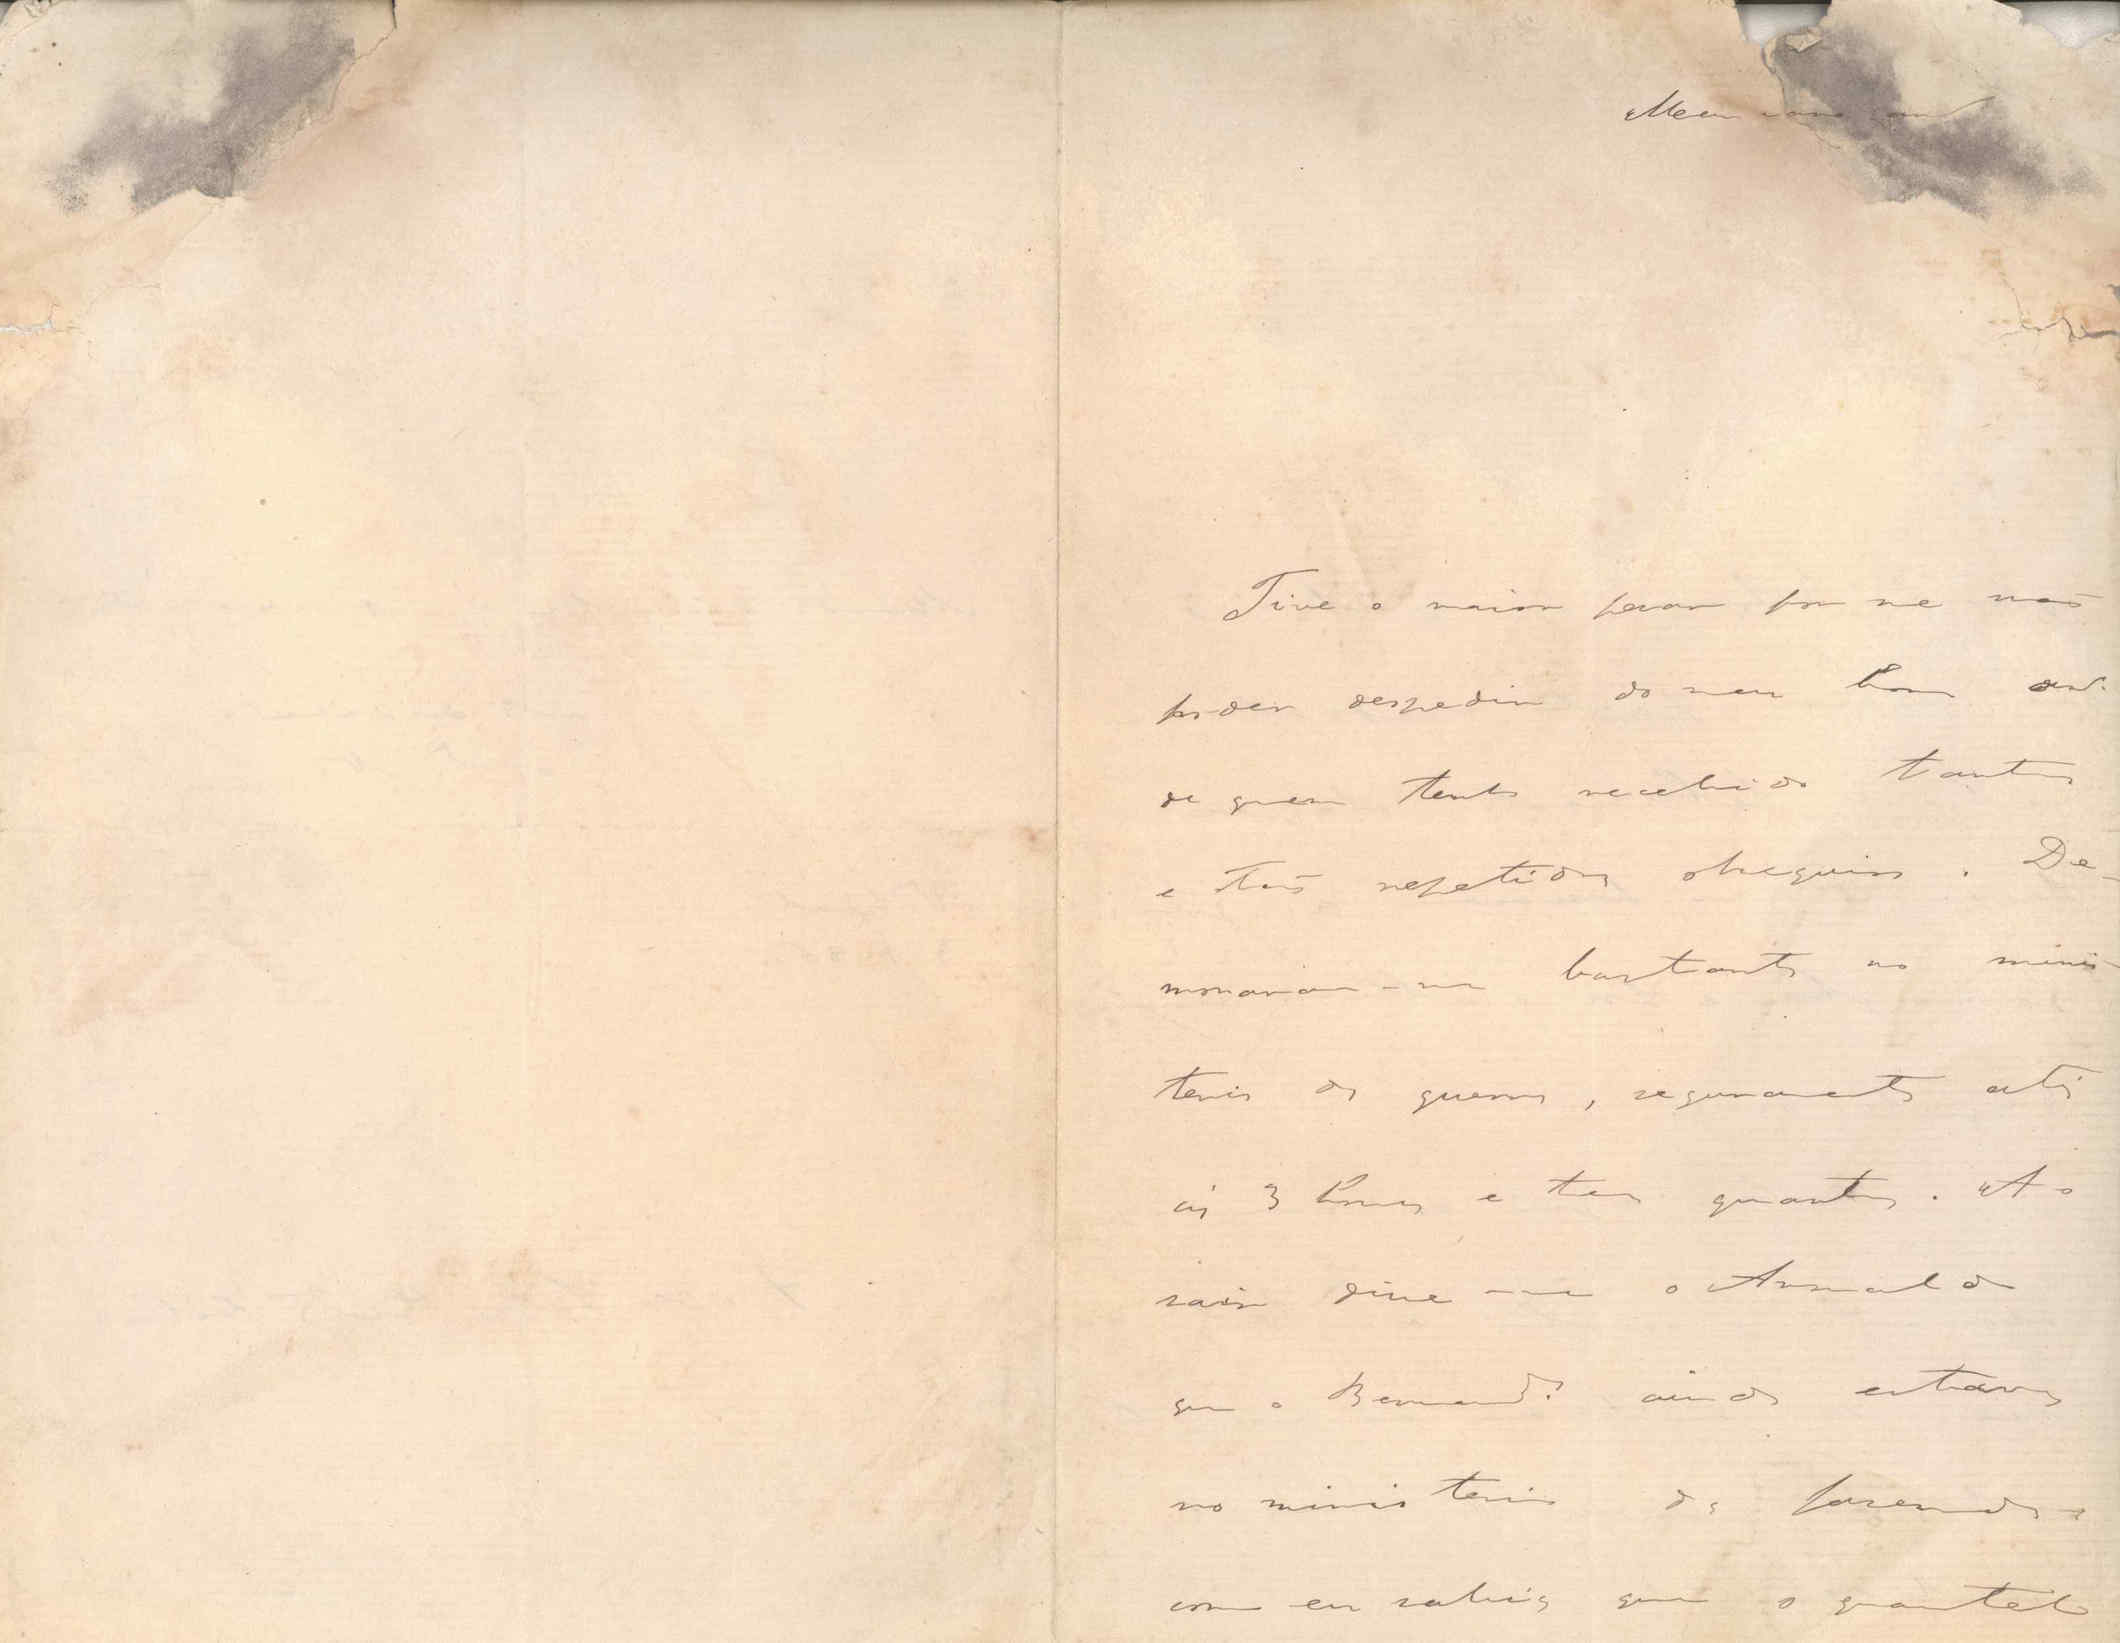 Meu caro am
Tive o maior pezar por me não
poder despedir do meu bom am.º
de quem tenho recebido tantos
e tão repetidos obsequios. De-
moraram-me bastante no minis-
terio da guerra, seguramente até
ás 3 horas e tres quartos. Ao
sair disse-me o Arnaldo
que o Bernard.º ainda estava
no ministerio da fazenda e
como eu sabia que o quartel